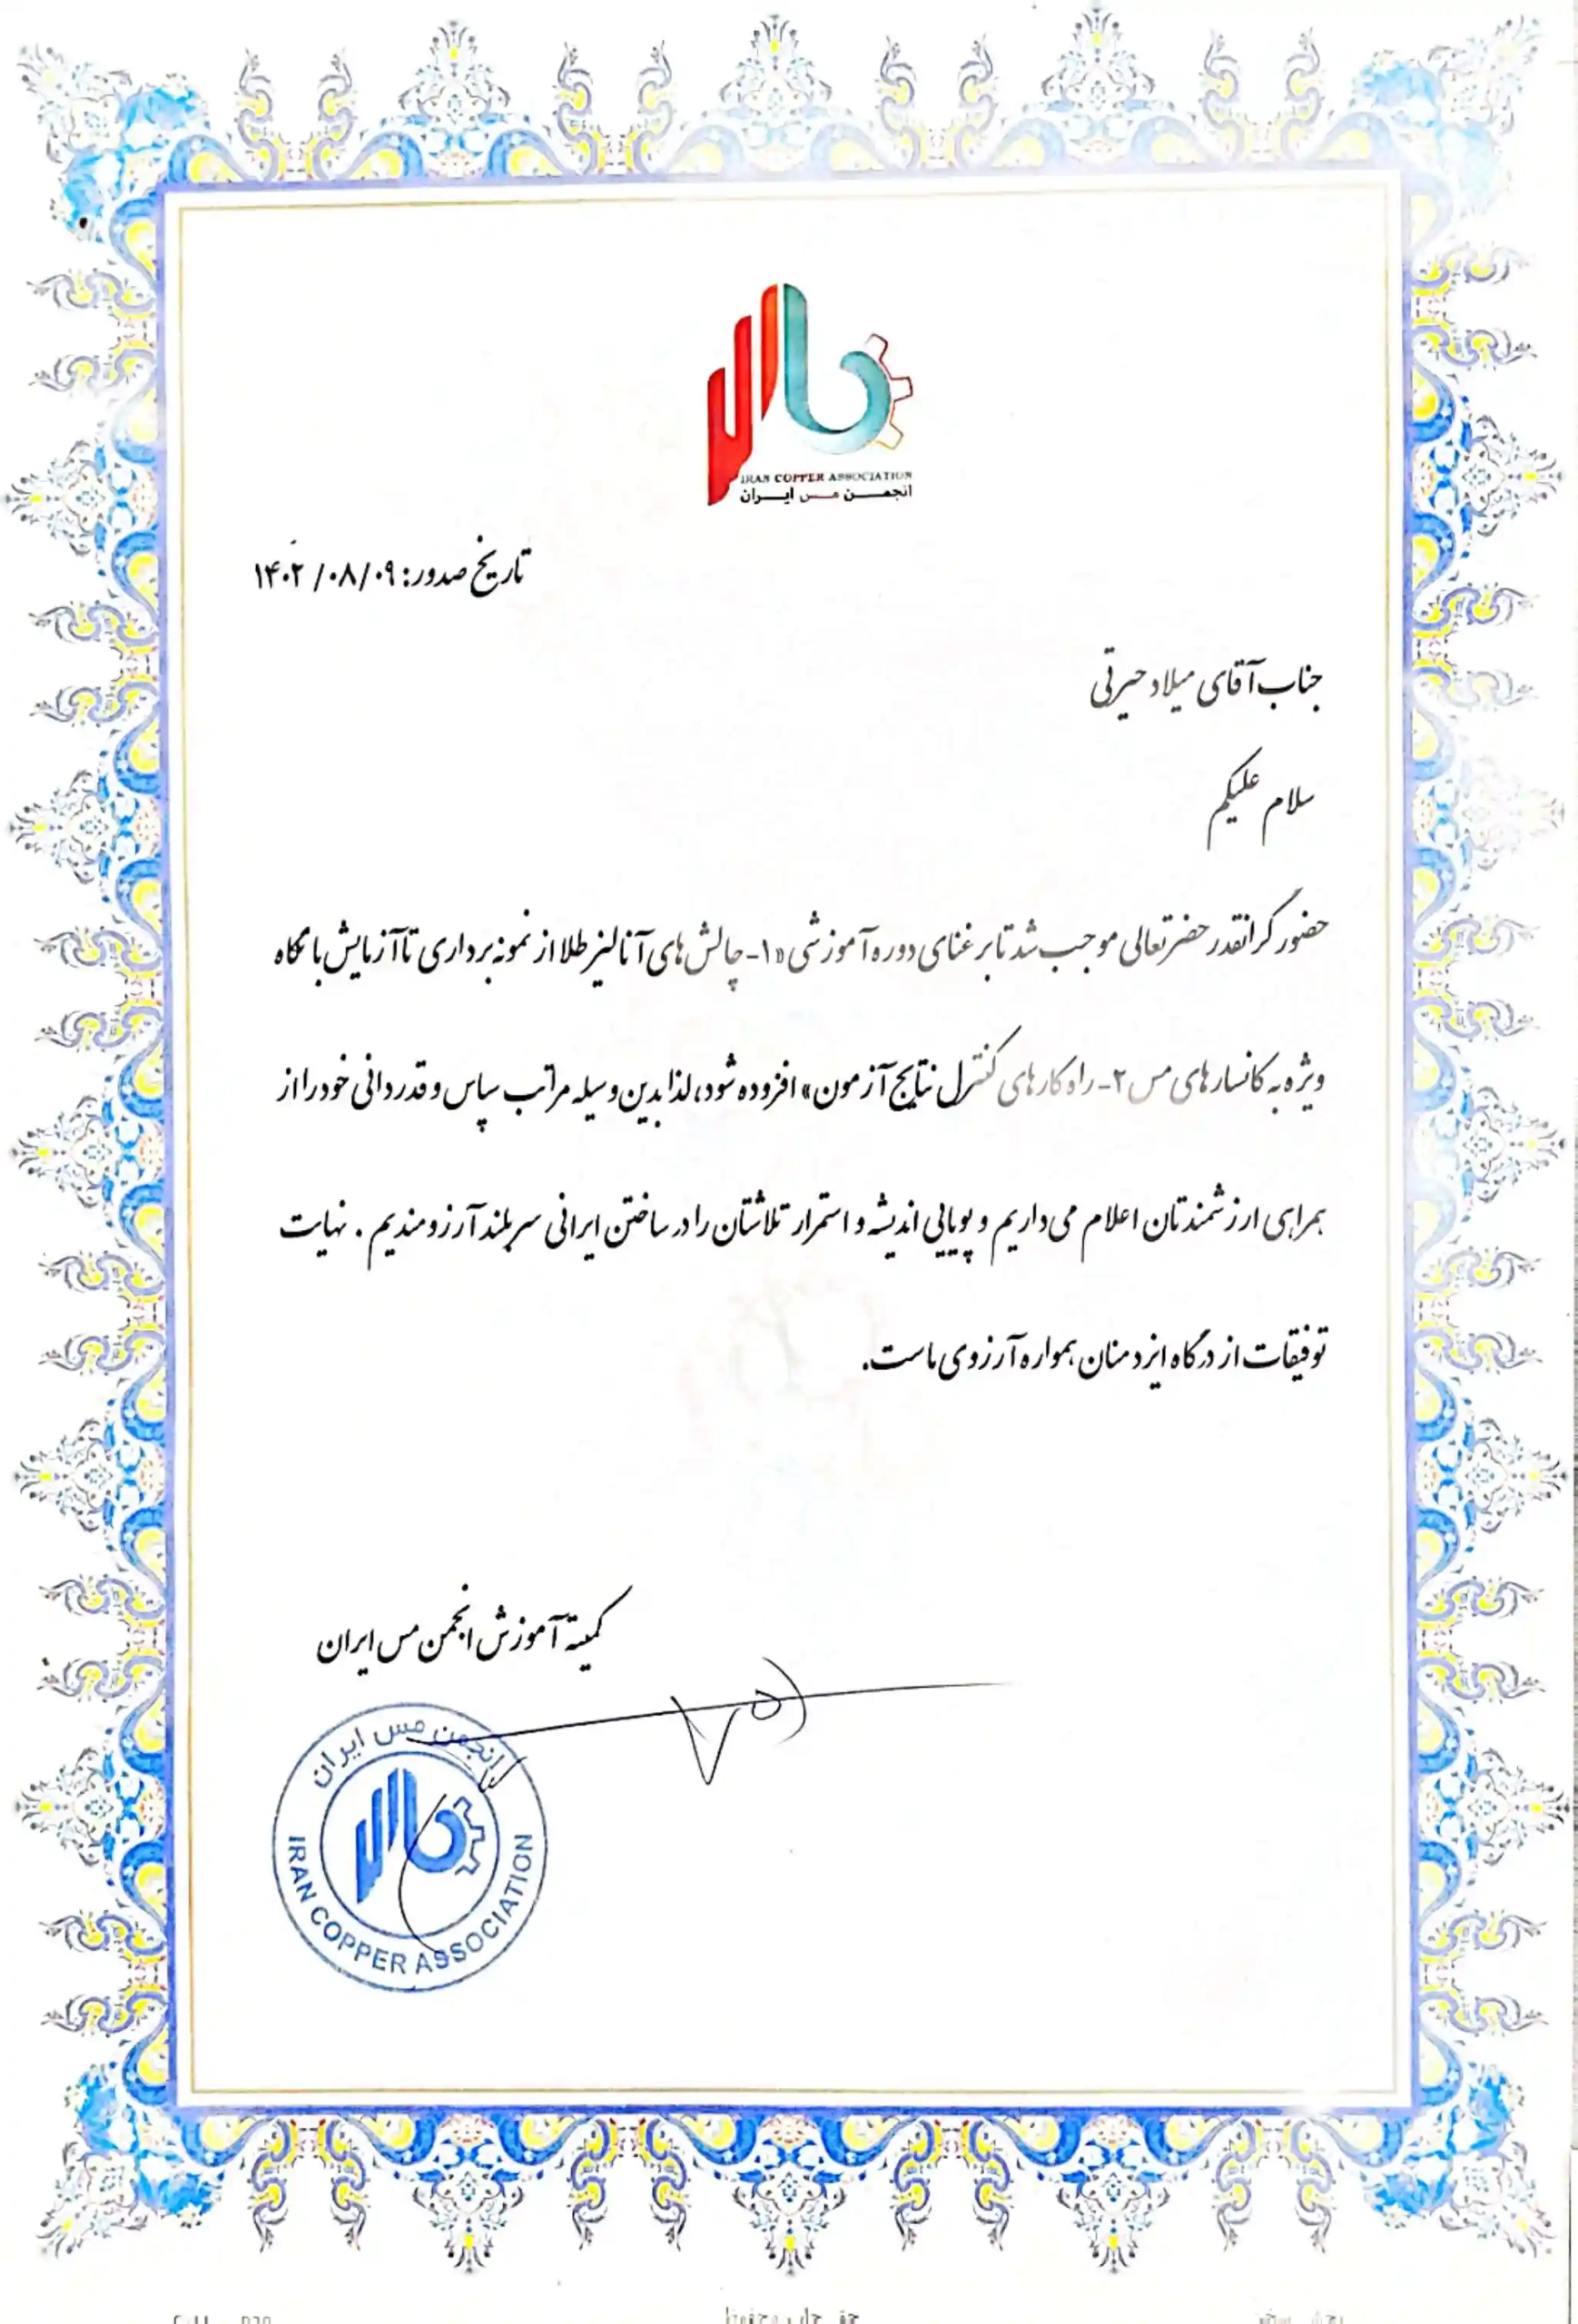 IRAN COPPER ASSOCIATION
انجمن مس ایران
تاریخ صدور: ۱۴۰۲/۰۸/۰۹
جناب آقای میلاد حیرتی
سلام علیکم
حضور گرانقدر حضرتعالی موجب شد تا بر غنای دوره آموزشی «۱- چالش های آنالیز طلا از نمونه برداری تا آزمایش با نگاه
ویژه به کانسارهای مس ۲- راه کارهای کنترل نتایج آزمون» افزوده شود، لذا بدین وسیله مراتب سپاس و قدردانی خود را از
همراهی ارزشمندتان اعلام می داریم و پویایی اندیشه و استمرار تلاشتان را در ساختن ایرانی سربلند آرزومندیم. نهایت
توفیقات از درگاه ایزد منان همواره آرزوی ماست.
کمیته آموزش انجمن مس ایران
انجمن مس ایران
IRAN COPPER ASSOCIATION